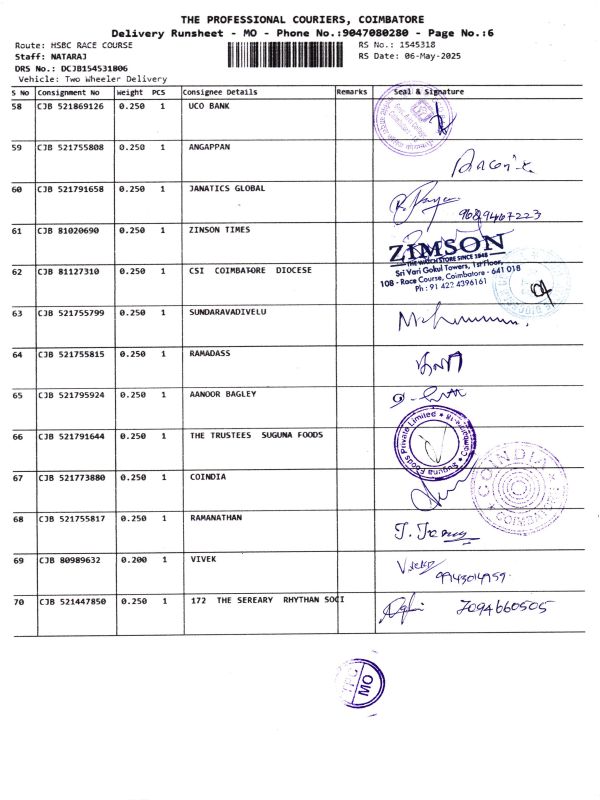 THE PROFESSIONAL COURIERS, COIMBATORE
Delivery Runsheet - MO - Phone No.:9047080280 - Page No.:6
Route: HSBC RACE COURSE RS No.: 1545318
Staff: NATARAJ RS Date: 06-May-2025
DRS No.: DCJB154531806
Vehicle: Two Wheeler Delivery
S No Consignment No Weight PCS Consignee Details Remarks Seal & Signature
58 CJB 521869126 0.250 1 UCO BANK
59 CJB 521755808 0.250 1 ANGAPPAN
60 CJB 521791658 0.250 1 JANATICS GLOBAL
9689467223
61 CJB 81020690 0.250 1 ZINSON TIMES
ZIMSON
THE WATCH STORE SINCE 1948
Sri Vari Gokul Towers, 1st Floor,
108 - Race Course, Coimbatore - 641 018
Ph : 91 422 4396161
62 CJB 81127310 0.250 1 CSI COIMBATORE DIOCESE
63 CJB 521755799 0.250 1 SUNDARAVADIVELU
64 CJB 521755815 0.250 1 RAMADASS
65 CJB 521795924 0.250 1 AANOOR BAGLEY
66 CJB 521791644 0.250 1 THE TRUSTEES SUGUNA FOODS
Suguna Foods Private Limited
67 CJB 521773880 0.250 1 COINDIA
COINDIA
68 CJB 521755817 0.250 1 RAMANATHAN
69 CJB 80989632 0.200 1 VIVEK
9943014959
70 CJB 521447850 0.250 1 172 THE SEREARY RHYTHAN SOCI
7094660505
TPC
MO